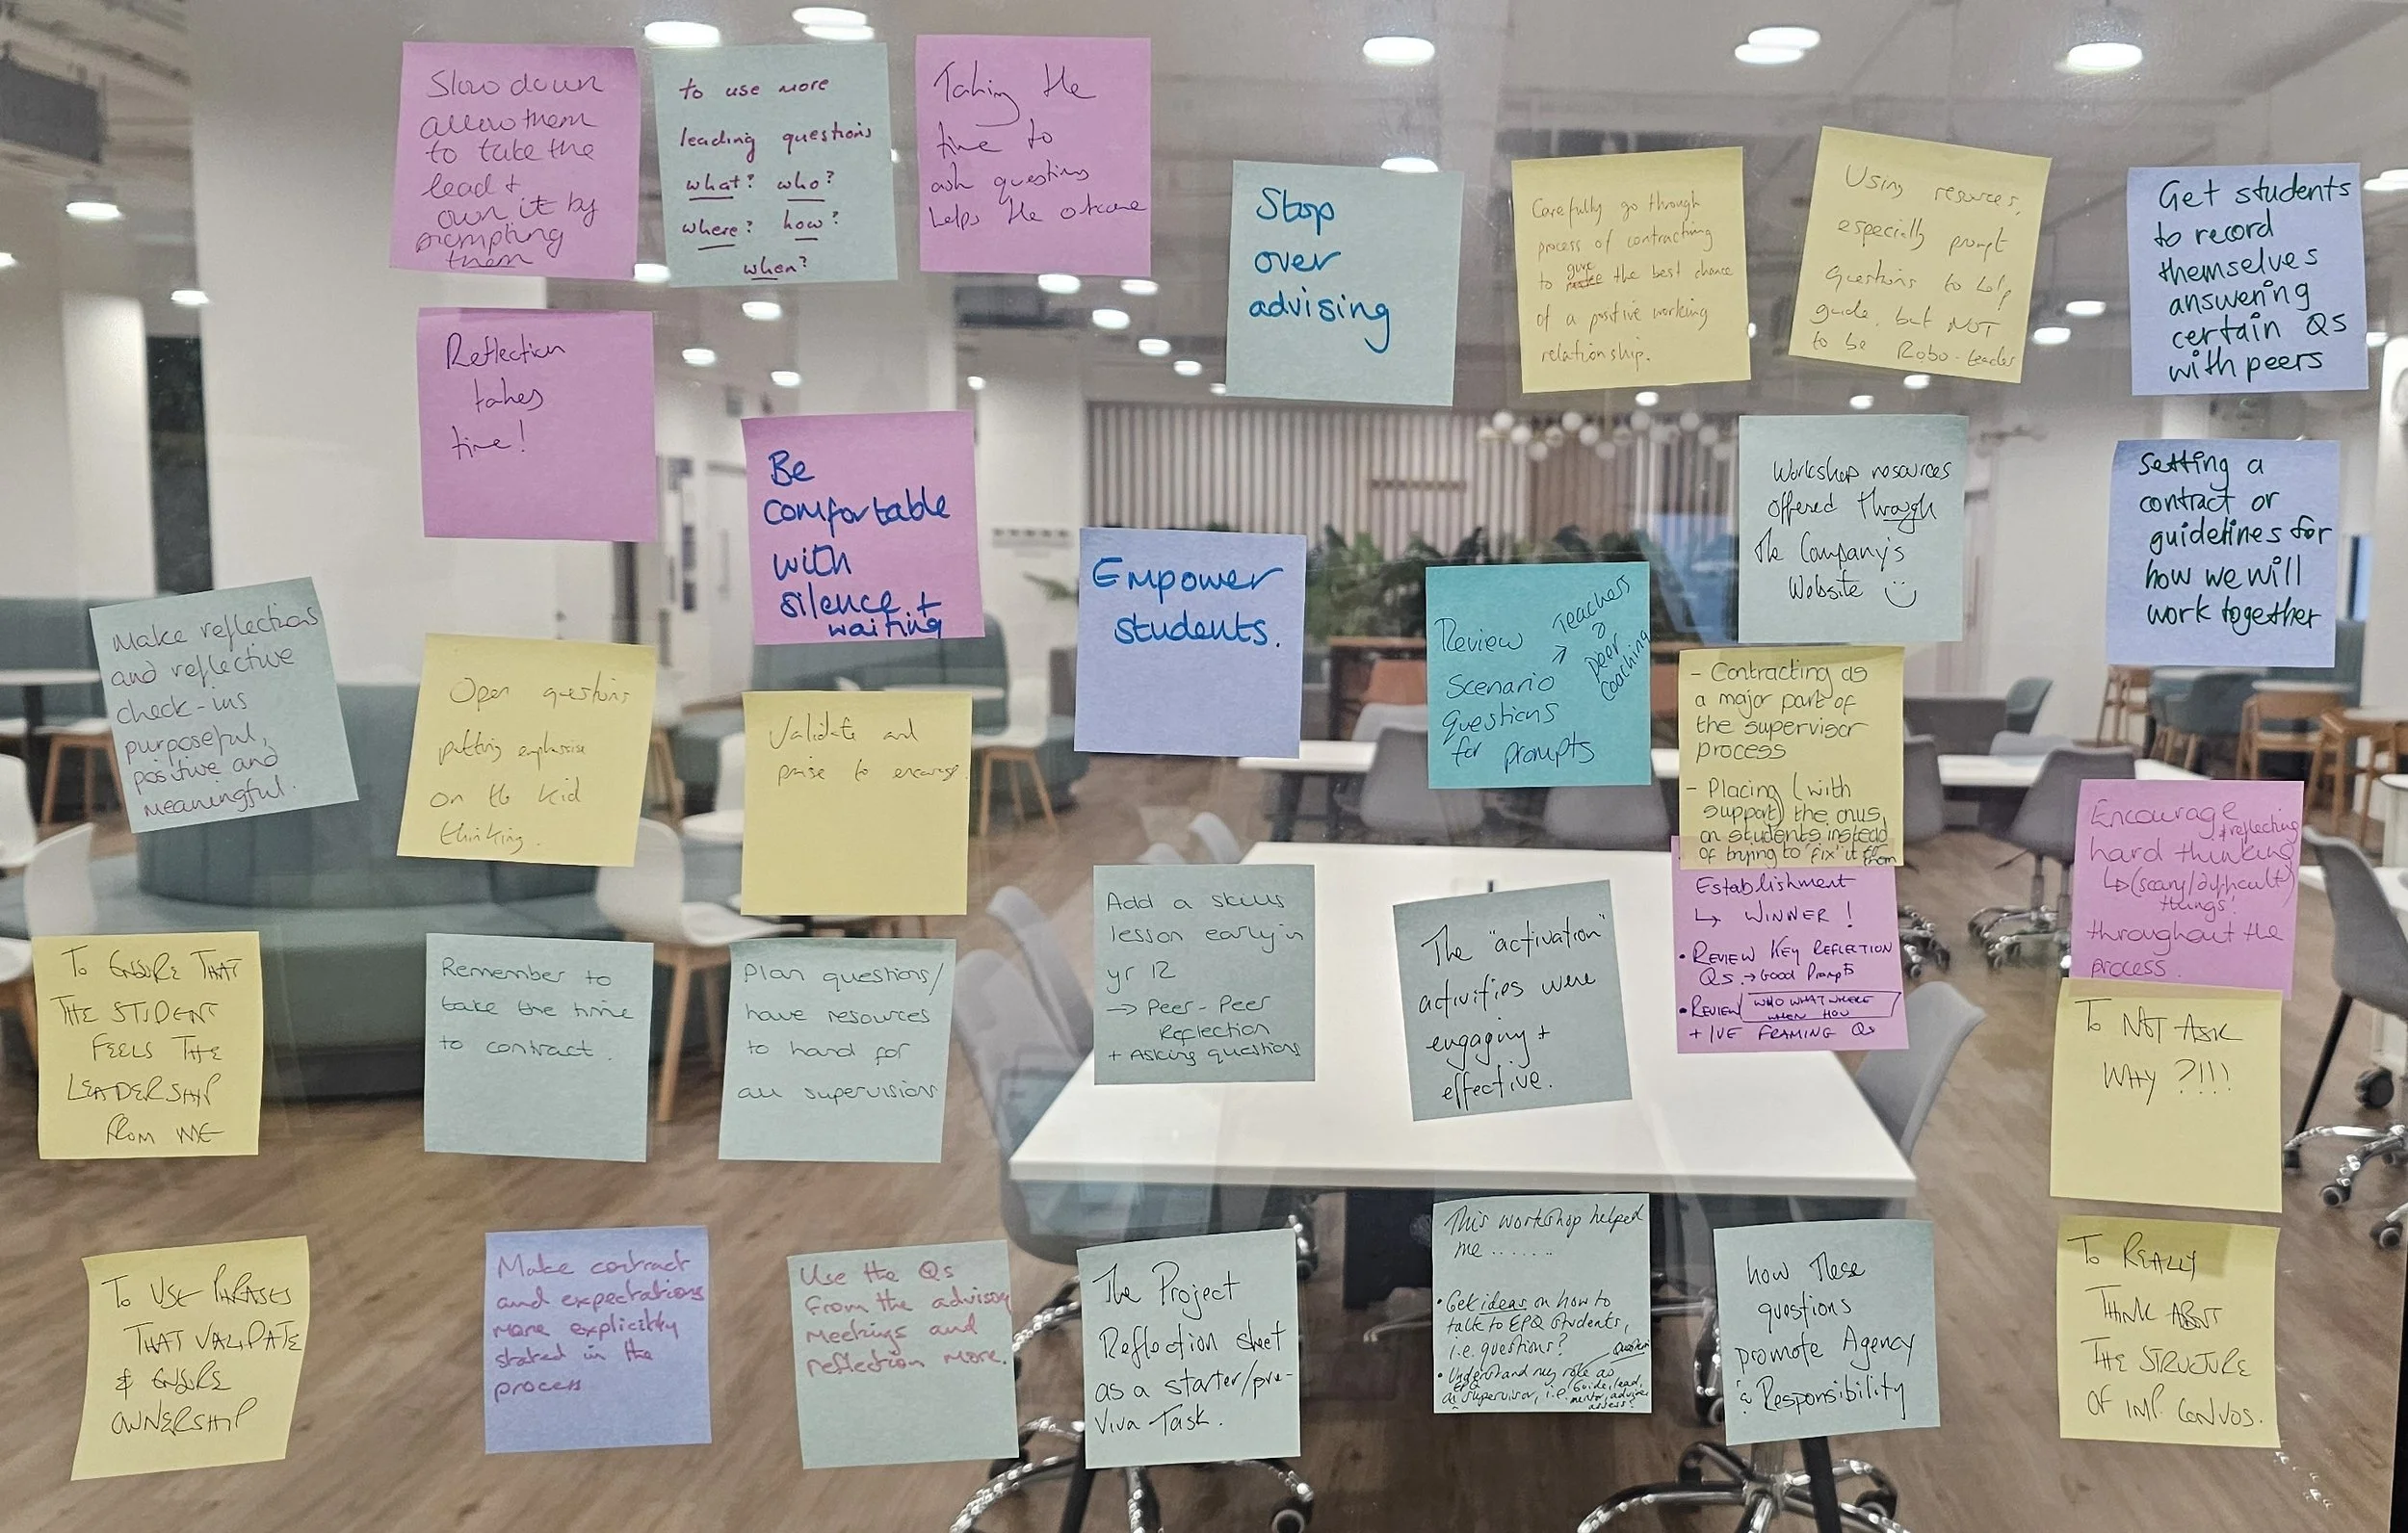 Slow down
allow them
to take the
lead +
own it by
prompting
them
to use more
leading questions
what? who?
where? how?
when?
Taking the
time to
ask questions
helps the outcome
Stop
over
advising
Carefully go through
process of contracting
to give the best chance
of a positive working
relationship.
Using resources,
especially prompt
Questions to help
guide, but NOT
to be Robo-teacher
Get students
to record
themselves
answering
certain Qs
with peers
Reflection
takes
time!
Be
comfortable
with
silence +
waiting
Empower
students.
Workshop resources
offered through
the Company's
Website
Setting a
contract or
guidelines for
how we will
work together
Make reflections
and reflective
check-ins
purposeful,
positive and
meaningful.
Open questions
putting emphasise
on the kid
thinking.
Validate and
praise to encourage.
Review
Scenario →
questions
for prompts
Teachers
peer
coaching
- Contracting as
a major part of
the supervisor
process
- Placing (with
support) the onus
on students instead
of trying to 'fix' it for them
Encourage
+ reflecting
hard thinking
↳ (scary/difficult)
things!
throughout the
process.
To ENSURE THAT
THE STUDENT
FEELS THE
LEADERSHIP
from ME
Remember to
take the time
to contract.
Plan questions/
have resources
to hand for
all supervisions
Add a skills
lesson early in
yr 12
→ Peer-Peer
Reflection
+ Asking questions
The "activation"
activities were
engaging +
effective.
Establishment
↳ WINNER!
• REVIEW KEY REFLECTION
QS. → Good Prompts
• REVIEW WHO WHAT WHERE
WHEN HOW
+ IVE FRAMING Qs
To NOT ASK
WHY ?!!!
To USE PHRASES
THAT VALIDATE
& ENSURE
OWNERSHIP
Make contract
and expectations
more explicitly
stated in the
process
Use the Qs
from the advisory
meetings and
reflection more.
The Project
Reflection sheet
as a starter/pre-
Viva Task.
This workshop helped
me .......
• Get ideas on how to
talk to EPQ students,
i.e. questions?
• Understand my role as
a supervisor, i.e. Guide, lead,
mentor, advise,
assess?
how these
questions
promote Agency
& Responsibility
To REALLY
THINK ABOUT
THE STRUCTURE
OF IMP. CONVOS.